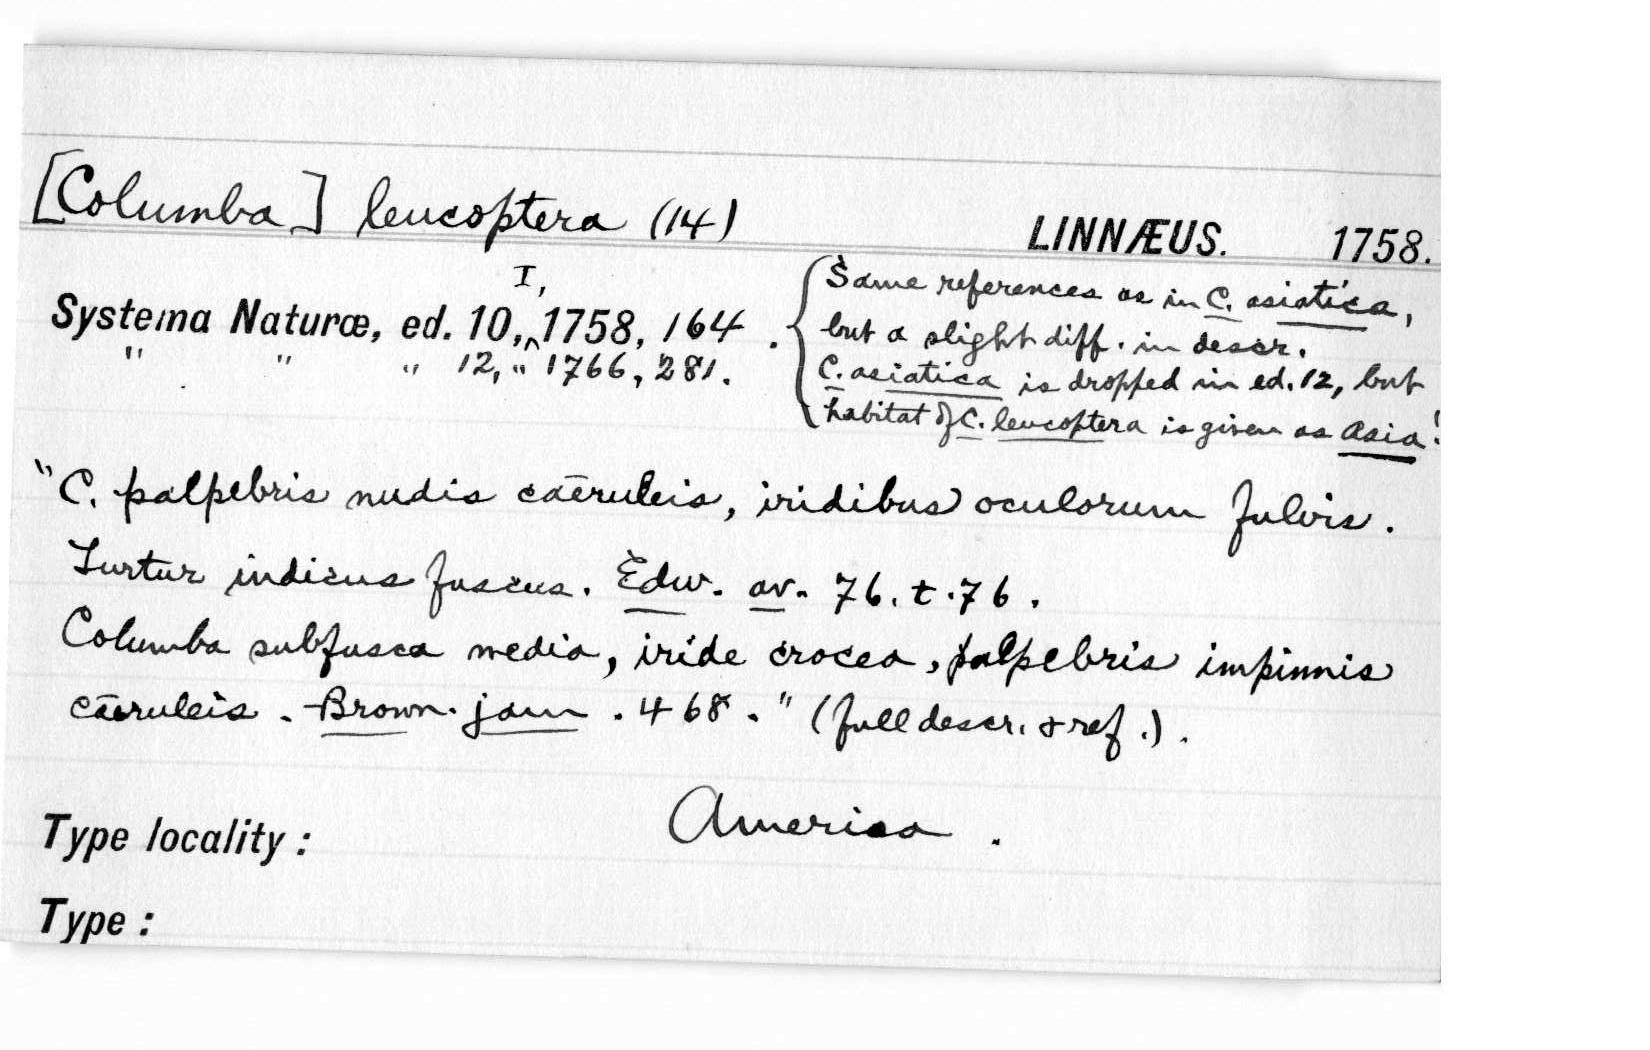 [Columba] leucoptera (14) LINNÆUS. 1758.
Systema Naturæ, ed. 10, I, 1758, 164.
" " " 12, " 1766, 281.
Same references as in C. asiatica,
but a slight diff. in descr.
C. asiatica is dropped in ed. 12, but
habitat of C. leucoptera is given as Asia!
"C. palpebris nudis cæruleis, iridibus oculorum fulvis.
Turtur indicus fuscus. Edw. av. 76. t. 76.
Columba subfusca media, iride crocea, palpebris impinnis
cæruleis. Brown. jam. 468." (full descr. & ref.).
Type locality: America.
Type: